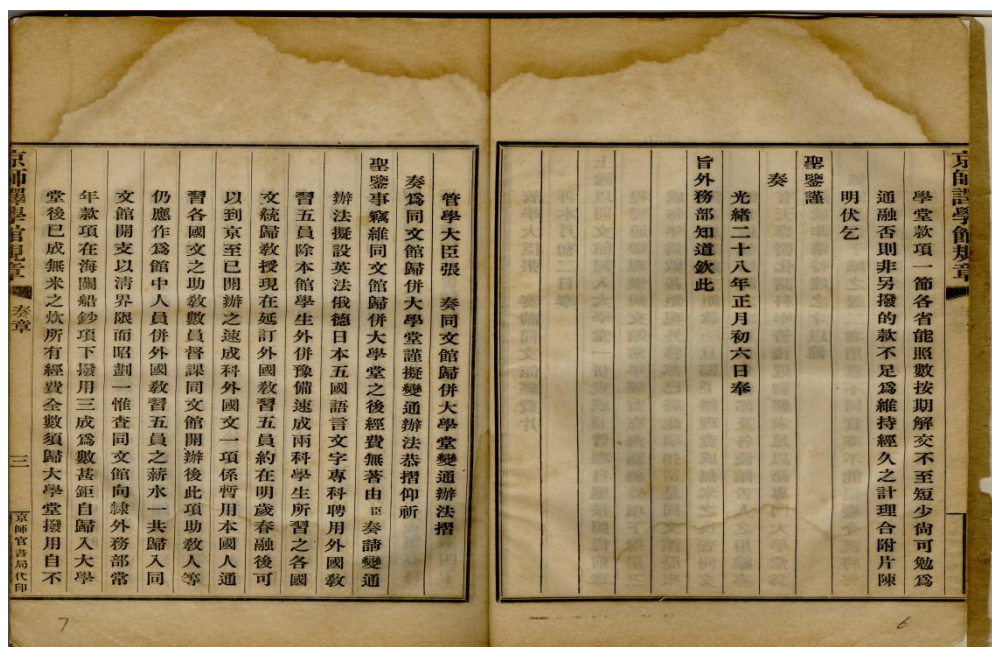 京師譯學館規章
學堂款項一節各省能照數按期解交不至短少尙可勉爲
通融否則非另撥的款不足爲維持經久之計理合附片陳
明伏乞
聖鑒謹
奏
光緒二十八年正月初六日奉
旨外務部知道欽此
6
管學大臣張 奏同文館歸併大學堂變通辦法摺
奏爲同文館歸併大學堂謹擬變通辦法恭摺仰祈
聖鑒事竊維同文館歸併大學堂之後經費無著由臣奏請變通
辦法擬設英法俄德日本五國語言文字專科聘用外國教
習五員除本館學生外併豫備速成兩科學生所習之各國
文統歸教授現在延訂外國教習五員約在明歲春融後可
以到京至已開辦之速成科外國文一項係暫用本國人通
習各國文之助教數員督課同文館開辦後此項助教人等
仍應作爲館中人員併外國教習五員之薪水一共歸入同
文館開支以淸界限而昭劃一惟查同文館向隸外務部常
年款項在海關船鈔項下撥用三成爲數甚鉅自歸入大學
堂後已成無米之炊所有經費全數須歸大學堂撥用自不
京師譯學館規章 奏章 三 京師官書局代印
7